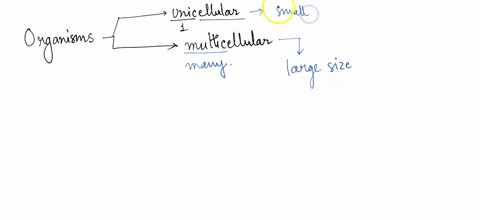 unicellular → small
1
Organisms
multicellular
many.
large size